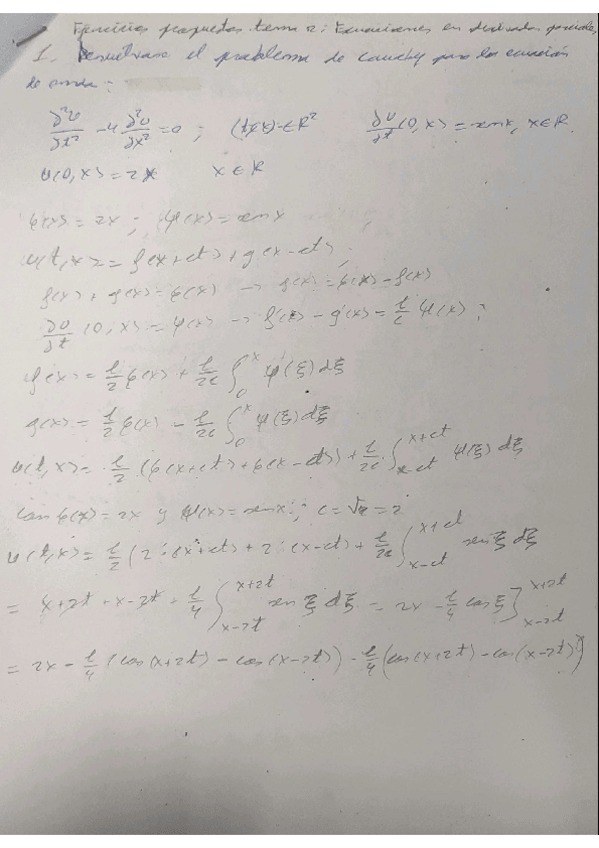 Ejercicios propuestos tema 2: Ecuaciones en derivadas parciales
1. Resuélvase el problema de Cauchy para la ecuación
de onda:
∂²u/∂t² - 4 ∂²u/∂x² = 0 ; (t,x) ∈ R² ∂u/∂t (0,x) = sen x, x ∈ R.
u(0,x) = 2x x ∈ R
φ(x) = 2x ; ψ(x) = sen x
u(t,x) = f(x+ct) + g(x-ct) ;
f(x) + g(x) = φ(x) → g(x) = φ(x) - f(x)
∂u/∂t (0,x) = ψ(x) → f'(x) - g'(x) = 1/c ψ(x) ;
f(x) = 1/2 φ(x) + 1/2c ∫₀ˣ ψ(ξ) dξ
g(x) = 1/2 φ(x) - 1/2c ∫₀ˣ ψ(ξ) dξ
u(t,x) = 1/2 (φ(x+ct) + φ(x-ct)) + 1/2c · ∫_{x-ct}^{x+ct} ψ(ξ) dξ
Con φ(x) = 2x y ψ(x) = sen x ; c = √4 = 2
u(t,x) = 1/2 (2·(x+ct) + 2·(x-ct) + 1/2c ∫_{x-ct}^{x+ct} sen ξ dξ
= x+2t + x-2t + 1/4 ∫_{x-2t}^{x+2t} sen ξ dξ = 2x - 1/4 cos ξ ]_{x-2t}^{x+2t}
= 2x - 1/4 (cos(x+2t) - cos(x-2t)) - 1/4 (cos(x+2t) - cos(x-2t))